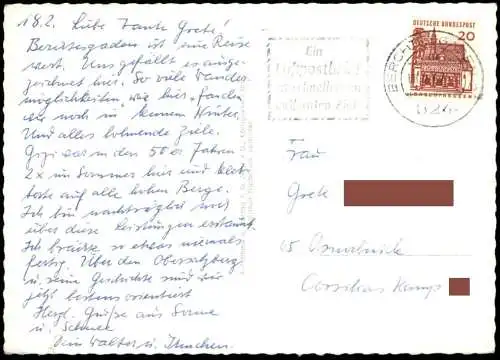 18.2. Liebe Tante Grete!
Berchtesgaden ist eine Reise
wert. Uns gefällt es ausge-
zeichnet hier. So viele Wander-
möglichkeiten, wie hier, fanden
wir noch in keinem Winter.
Und alles lohnende Ziele.
Gigi war in den 50er Jahren
2x im Sommer hier und klet-
terte auf alle hohen Berge.
Ich bin nachträglich noch
über diese Leistungen erstaunt.
Ich brächte so etwas niemals
fertig. Über den Obersalzberg
u. seine Geschichte sind wir
jetzt bestens orientiert
Herzl. Grüße aus Sonne
u. Schnee
Dein Walter u.
Ein
Luftpostbrief
schneller
DEUTSCHE BUNDESPOST
20
Frau
Grete
45 Osnabrück
Kamp